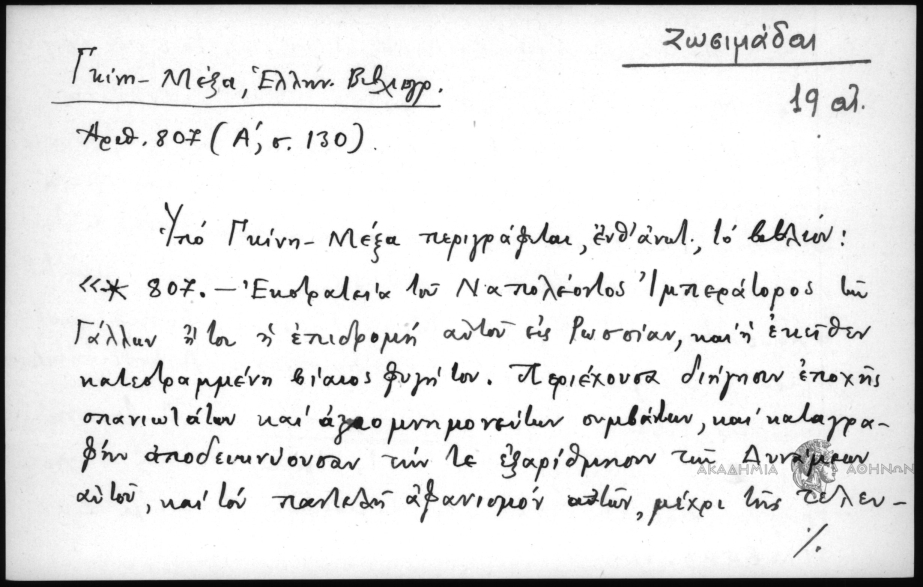 Ζωσιμάδαι
Γκίνη - Μέξα, Ἑλλην. Βιβλιογρ.
19 αἰ.
Ἀριθ. 807 (Α΄, σ. 130).
Ὑπό Γκίνη - Μέξα περιγράφεται, ἔνθ' ἀνωτ., τό βιβλίον:
«* 807. — Ἐκστρατεία τοῦ Ναπολέοντος Ἰμπεράτορος τῶν
Γάλλων ἤ τοι ἡ ἐπιδρομή αὐτοῦ εἰς Ρωσσίαν, καί ἡ ἐκεῖθεν
κατεστραμμένη βίαιος φυγή του. Περιέχουσα διήγησιν ἐποχῆς
σπανιωτάτων καί ἀξιομνημονεύτων συμβάντων, καί καταγρα-
φήν ἀποδεικνύουσαν τήν τε ἐξαρίθμησιν τῶν Δυνάμεων
ΑΚΑΔΗΜΙΑ ΑΘΗΝΩΝ
αὐτοῦ, καί τόν παντελῆ ἀφανισμόν αὐτῶν, μέχρι τῆς τελευ-
./.